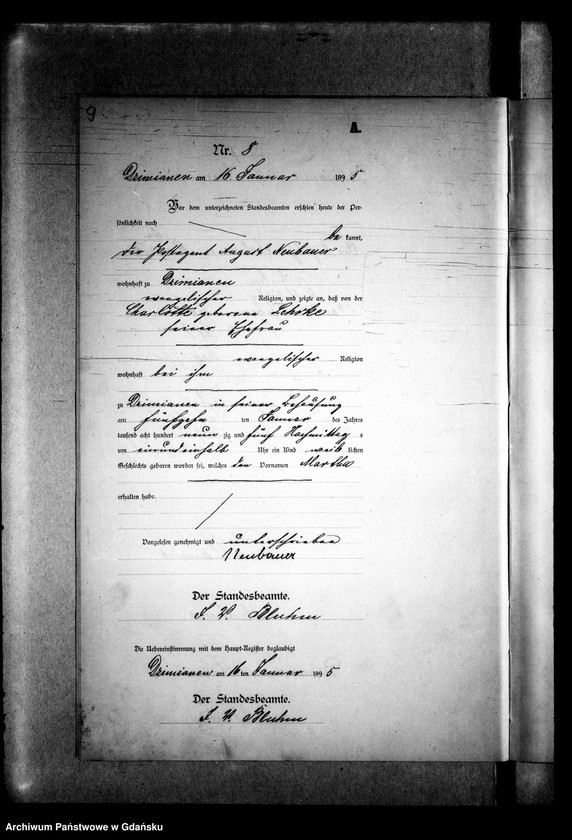 9
A.
Nr. 8
Dzimianen am 16 Januar 1895
Vor dem unterzeichneten Standesbeamten erschien heute der Per-
sönlichkeit nach
bekannt,
der Postagent August Neubauer
wohnhaft zu Dzimianen
evangelischer Religion, und zeigte an, daß von der
Charlotte geborene Lehrke
seiner Ehefrau
evangelischer Religion
wohnhaft bei ihm
zu Dzimianen in seiner Behausung
am fünfzehn ten Januar des Jahres
tausend acht hundert neun zig und fünf Nachmittag s
um einundeinhalb Uhr ein Kind weib lichen
Geschlechts geboren worden sei, welches den Vornamen Martha
erhalten habe.
Vorgelesen genehmigt und unterschrieben
Neubauer
Der Standesbeamte.
J. V. Bluhm
Die Uebereinstimmung mit dem Haupt-Register beglaubigt
Dzimianen am 16 ten Januar 1895
Der Standesbeamte.
J. V. Bluhm
Archiwum Państwowe w Gdańsku